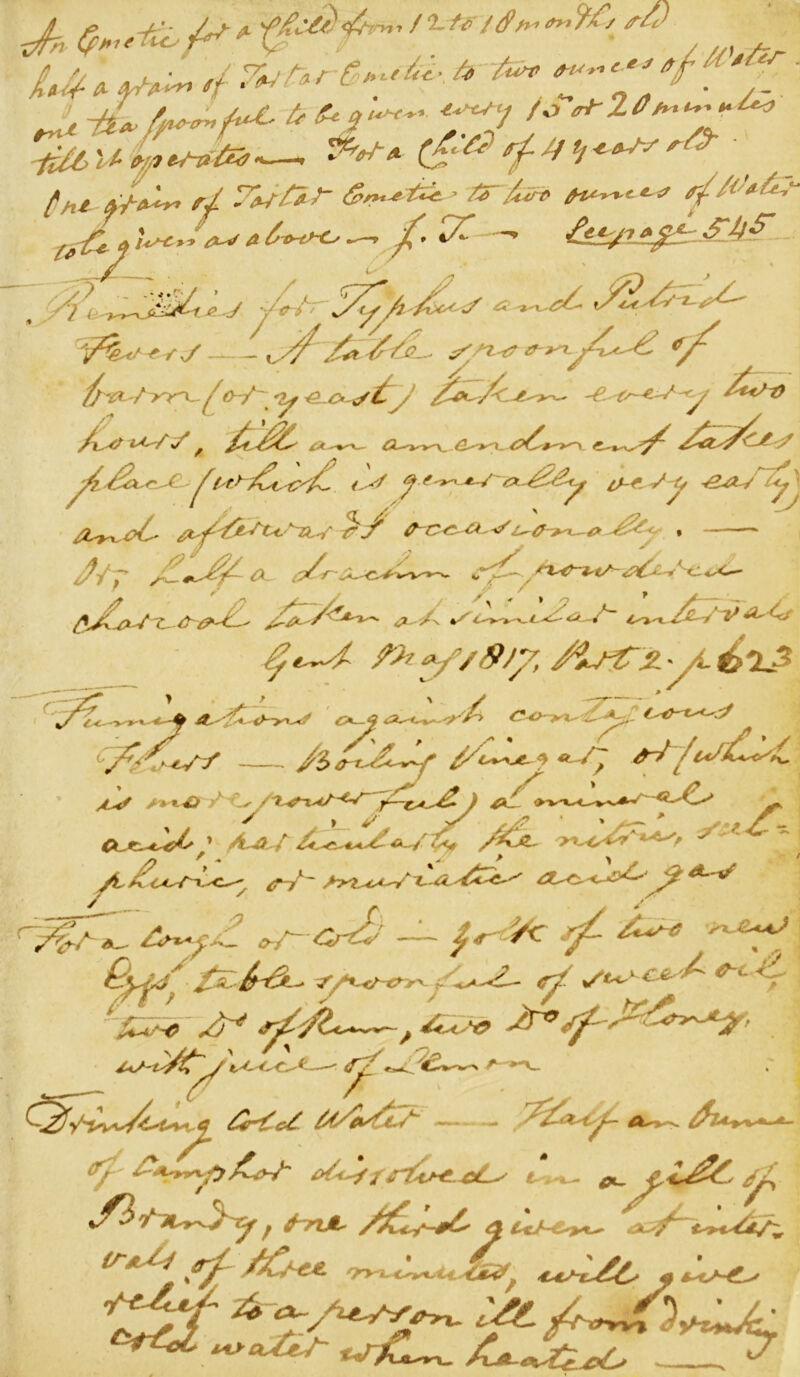 An Emetic for a Child from 12 to 18 months old
half a grain of Tartar Emetic to two ounces of Water
one tea spoonful to be given every 15 or 20 minutes
till it operates — For a Child of 4 years old
One grain of Tartar Emetic to two ounces of Water
to be given as above — J. T. — See page 545
Remedies for Typhus and Putrid
Fevers — A table spoonful of
barm (or yeast) taken every two
hours, till an amendment takes
place (which is generally very early)
and afterwards occasionally. —
Or, half a drachm of powdered
charcoal taken at similar intervals
Gent Mag 1817, Part 2. p 623
Fumigations against contagious
Fevers — Boiling Vinegar, or (which
is more powerful) a mineral
acid; particularly the nitric, sul=
phuric, or muriatic acid gas
For a Cough or Cold — Yolk of two new
Eggs, table spoonful of sweet oil,
two Do of Rum, two Do of Honey,
with juice of Lemon
Drinking Cold Water — Half an Ounce
of Camphor dissolved in a gill of
Brandy, one third given at inter-
vals of three minutes, will give
relief to a person ill from drinking
cold water when heated —